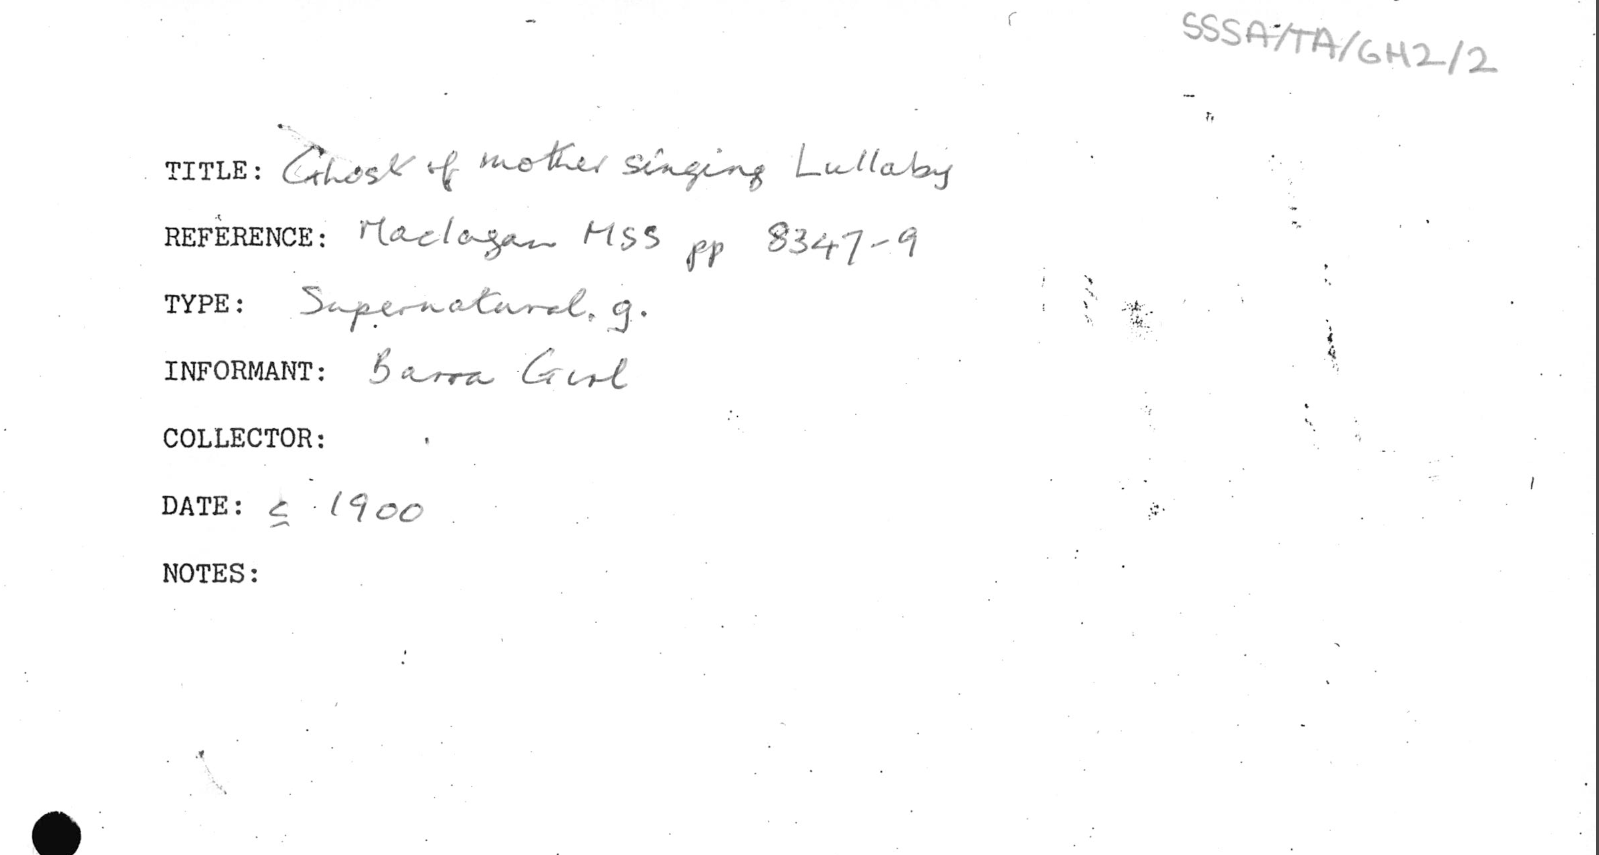 SSSA/TA/GH2/2
TITLE: Ghost of mother singing Lullaby
REFERENCE: Maclagan MSS pp 8347-9
TYPE: Supernatural. g.
INFORMANT: Barra Girl
COLLECTOR:
DATE: c 1900
NOTES: